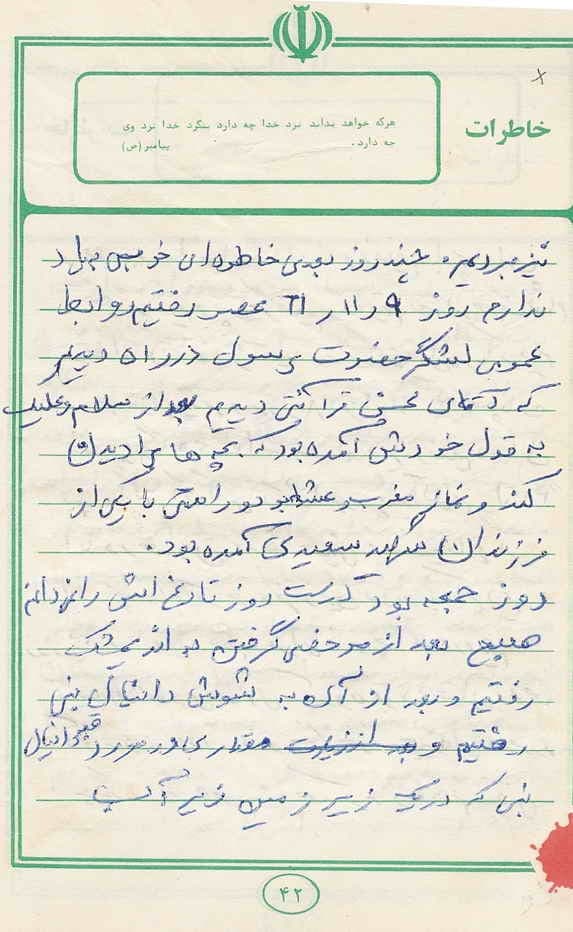 خاطرات
هرکه خواهد بداند نزد خدا چه دارد بنگرد خدا نزد وی
چه دارد. پیامبر(ص)
نیز میریم. چند روز بعدی خاطره‌ای خوبی بیاد
ندارم روز ۹ ر ۱۱ ر ۶۱ عصر رفتیم روابط
عمومی لشگر حضرت رسول در راه دیدیم
که آقای محسن قرائتی دیدیم بعد از سلام و علیک
به قول خودش آمده بود که بچه ها را دیدن
کند و نماز مغرب و عشا بود و راستی با یکی از
فرزندان شهید سعیدی آمده بود.
روز جمعه بود درست روز تاریخ اش را نمیدانم
صبح بعد از مرخصی گرفتن به اندیمشک
رفتیم و بعد از آن به شوش دانیال نبی
رفتیم و بعد از زیارت مقداری در مورد قبر دانیال
نبی که در یک زیر زمین زیر
۴۲